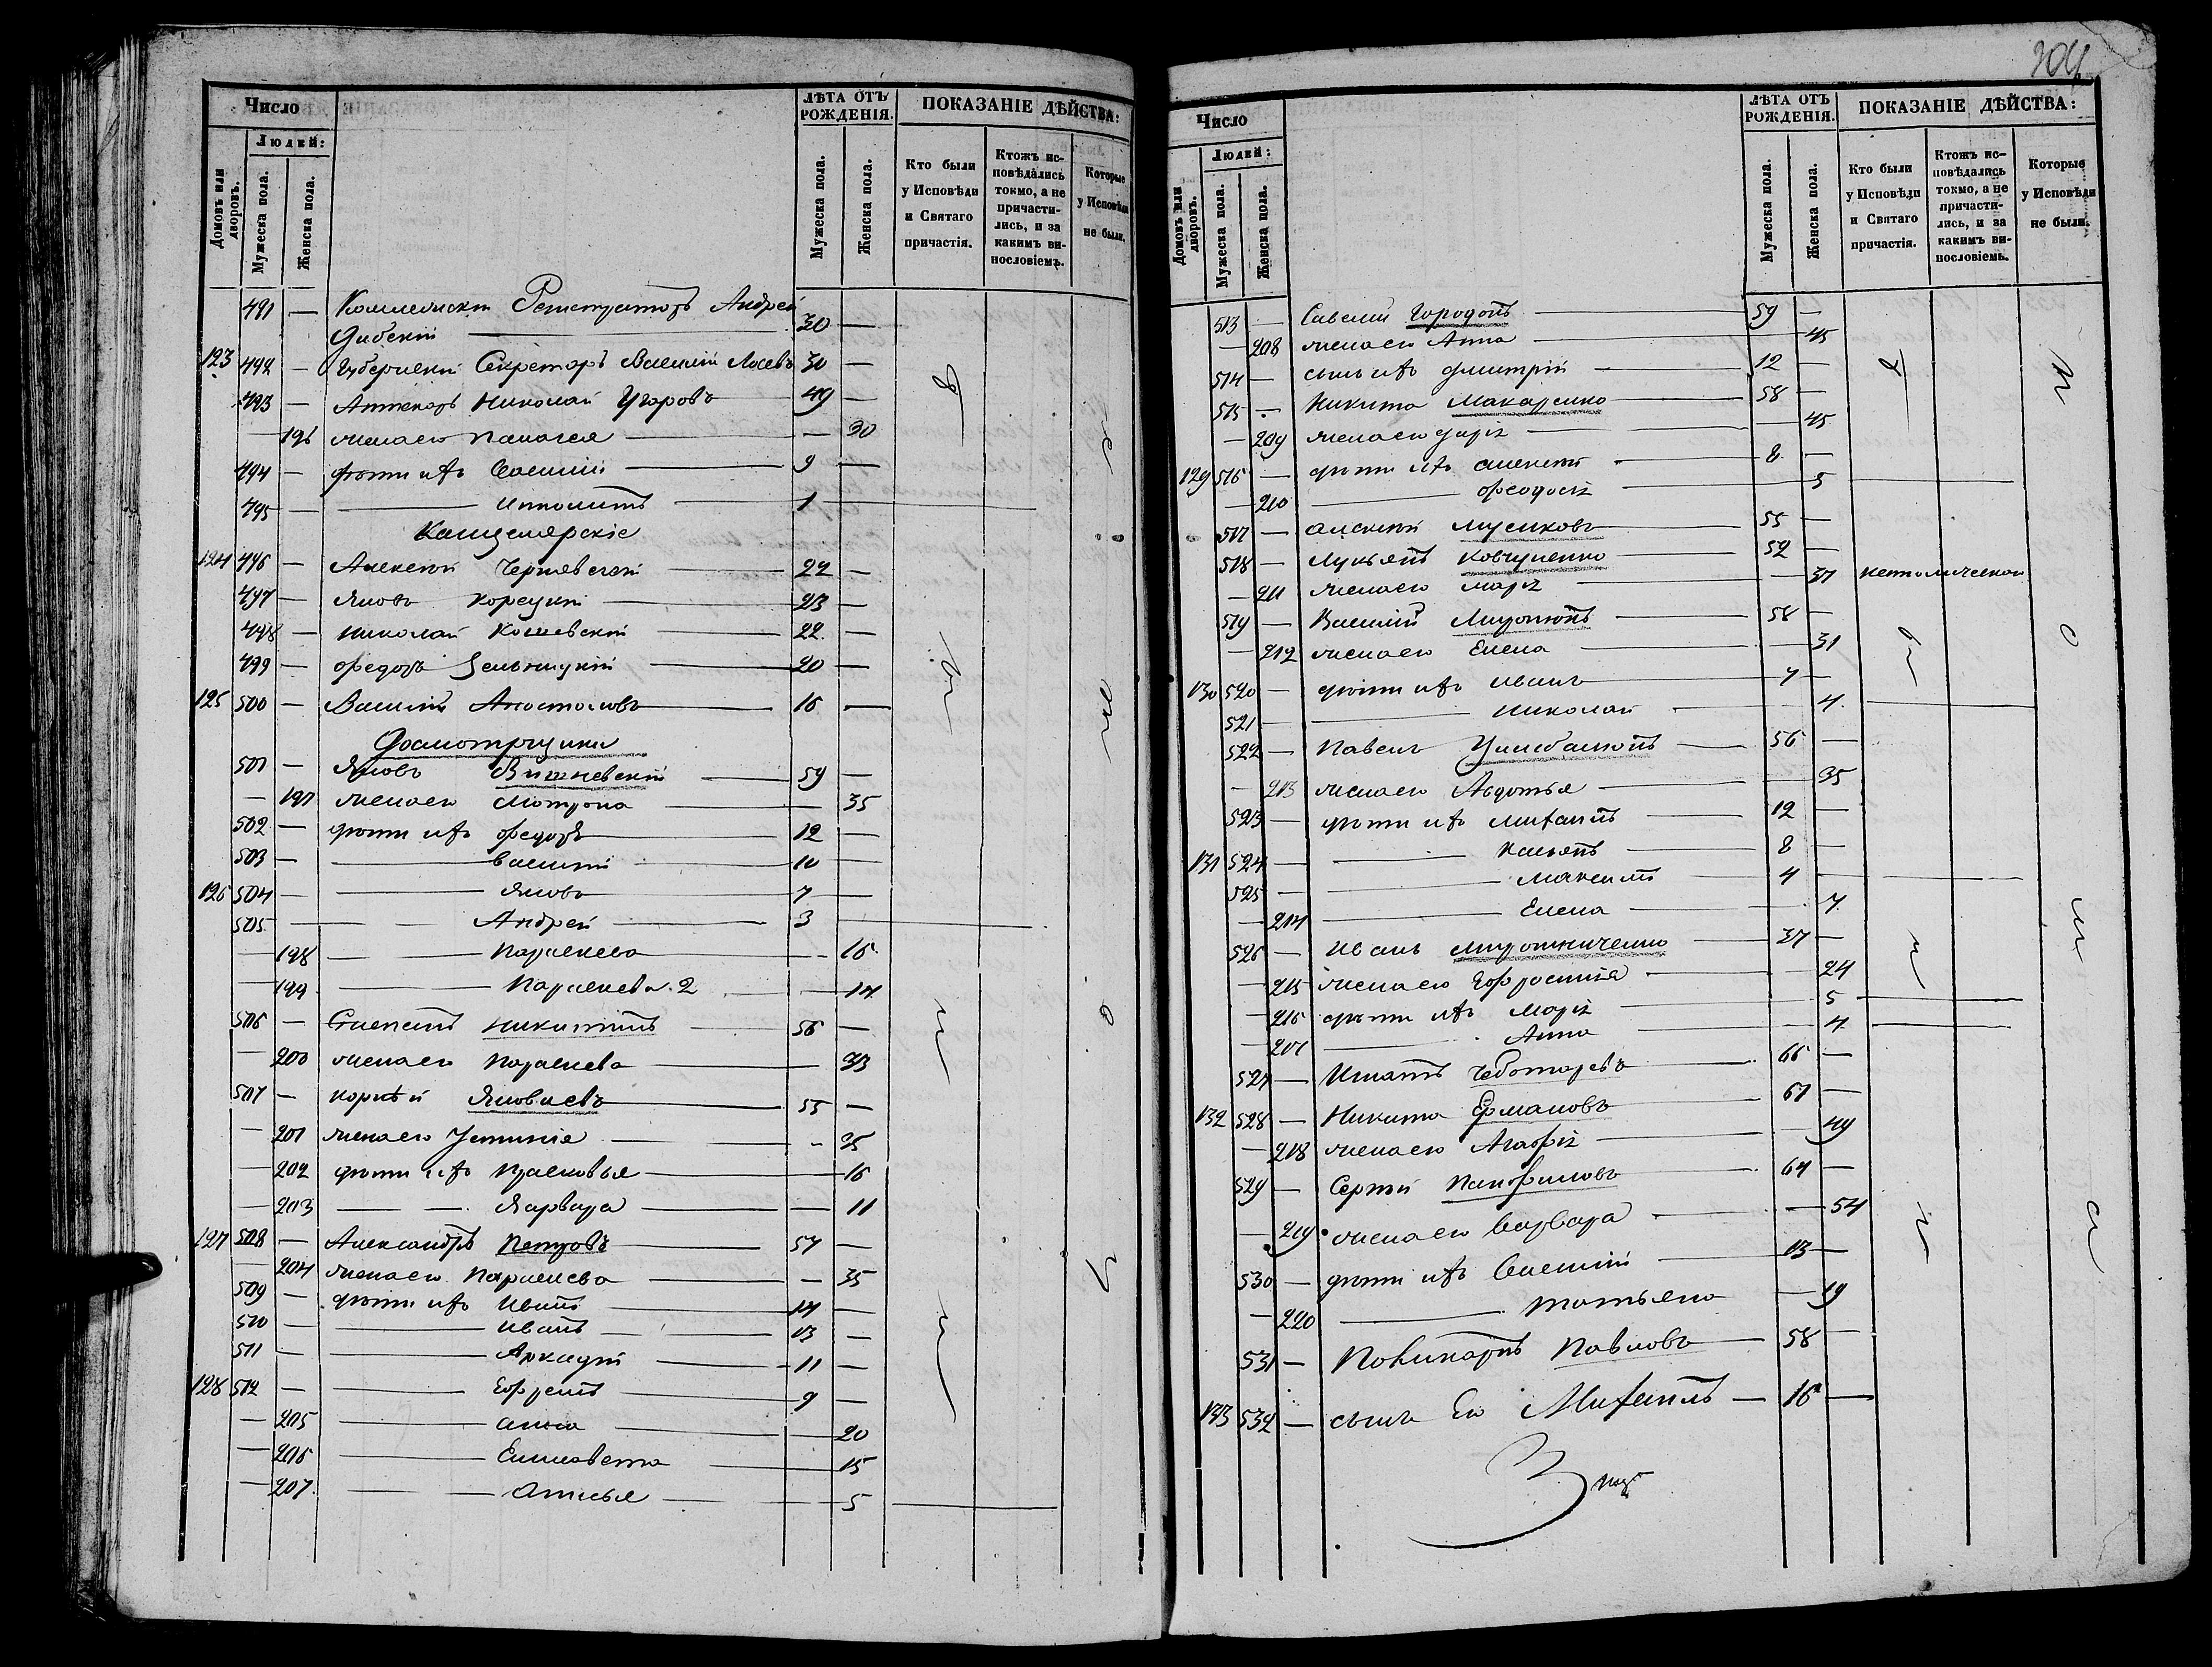 Число
Людей:
Домовъ или дворовъ.
Мужеска пола.
Женска пола.
ЛѢТА ОТЪ РОЖДЕНІЯ.
Мужеска пола.
Женска пола.
ПОКАЗАНІЕ ДѢЙСТВА:
Кто были у Исповѣди и Святаго причастія.
Ктожъ исповѣдались токмо, а не причастились, и за какимъ винословіемъ.
Которые у Исповѣди не были.
491 — Андрей
30 —
123 492 — Губернскій Секретарь Василій Лосевъ 30 —
493 — Аптекарь Николай Угаровъ 49 —
— 196 жена его Пелагея — 30
494 — дѣти ихъ Василій 9 —
495 — Ипполитъ 1
Канцелярскіе
124 496 — Алексѣй Чернявскій 22 —
497 — Яковъ Корецкій 23 —
498 — Николай 22 —
499 — Федоръ 20 —
125 500 — Василій Апостоловъ 16 —
501 — Яковъ Вишневскій 59 —
— 197 жена его Мотрона — 35
502 — дѣти ихъ Федоръ 12 —
503 — Василій 10 —
126 504 — Яковъ 7 —
505 — Андрей 3
— 198 Параскева — 16
— 199 Параскева 2 — 14
506 — Никитинъ 56 —
— 200 жена его Параскева — 33
507 — Корнѣй Яковлевъ 55 —
— 201 жена его Устинія — 35
— 202 дѣти ихъ Прасковья — 16
— 203 Варвара — 11
127 508 — Александръ Петровъ 57 —
— 204 жена его Параскева — 35
509 — дѣти ихъ Иванъ 14 —
510 — Иванъ 13 —
511 — Аркадій 11 —
128 512 — Ефремъ 9 —
— 205 Анна 20
— 206 Елисавета 15
— 207 5
204
Число
Людей:
Домовъ или дворовъ.
Мужеска пола.
Женска пола.
ЛѢТА ОТЪ РОЖДЕНІЯ.
Мужеска пола.
Женска пола.
ПОКАЗАНІЕ ДѢЙСТВА:
Кто были у Исповѣди и Святаго причастія.
Ктожъ исповѣдались токмо, а не причастились, и за какимъ винословіемъ.
Которые у Исповѣди не были.
513 — Савелій 59 —
— 208 жена его Анна — 45
514 — сынъ ихъ Дмитрій 12 —
515 — Никита Макаренко 58 —
— 209 жена его Дарія — 45
129 516 — дѣти ихъ Алексѣй 8 —
— 210 Феодосія 5
517 — Алексѣй 55 —
518 — Лукьянъ Ковтуненко 52 —
— 211 жена его Марія — 37 католической
519 — Василій 58 —
— 212 жена его Елена — 31
130 520 — дѣти ихъ Иванъ 7 —
521 — Николай 4
522 — Павелъ 56 —
— 213 жена его Авдотья — 35
523 — дѣти ихъ Михаилъ 12 —
131 524 — Касьянъ 8 —
525 — Максимъ 4 —
— 214 Елена — 7
526 — Иванъ Мирошниченко 37 —
— 215 жена его Ефросинія — 24
— 216 дѣти ихъ Марія — 5
— 217 Анна — 4
527 — Игнатъ Чеботаревъ 66 —
132 528 — Никита Ермаковъ 61 —
— 218 жена его Агафія — 49
529 — Сергѣй Панфиловъ 64 —
— 219 жена его Варвара — 54
530 — дѣти ихъ Василій 13 —
— 220 Татьяна — 19
531 — Поликарпъ Павловъ 58 —
133 532 — сынъ Его Михаилъ 16 —